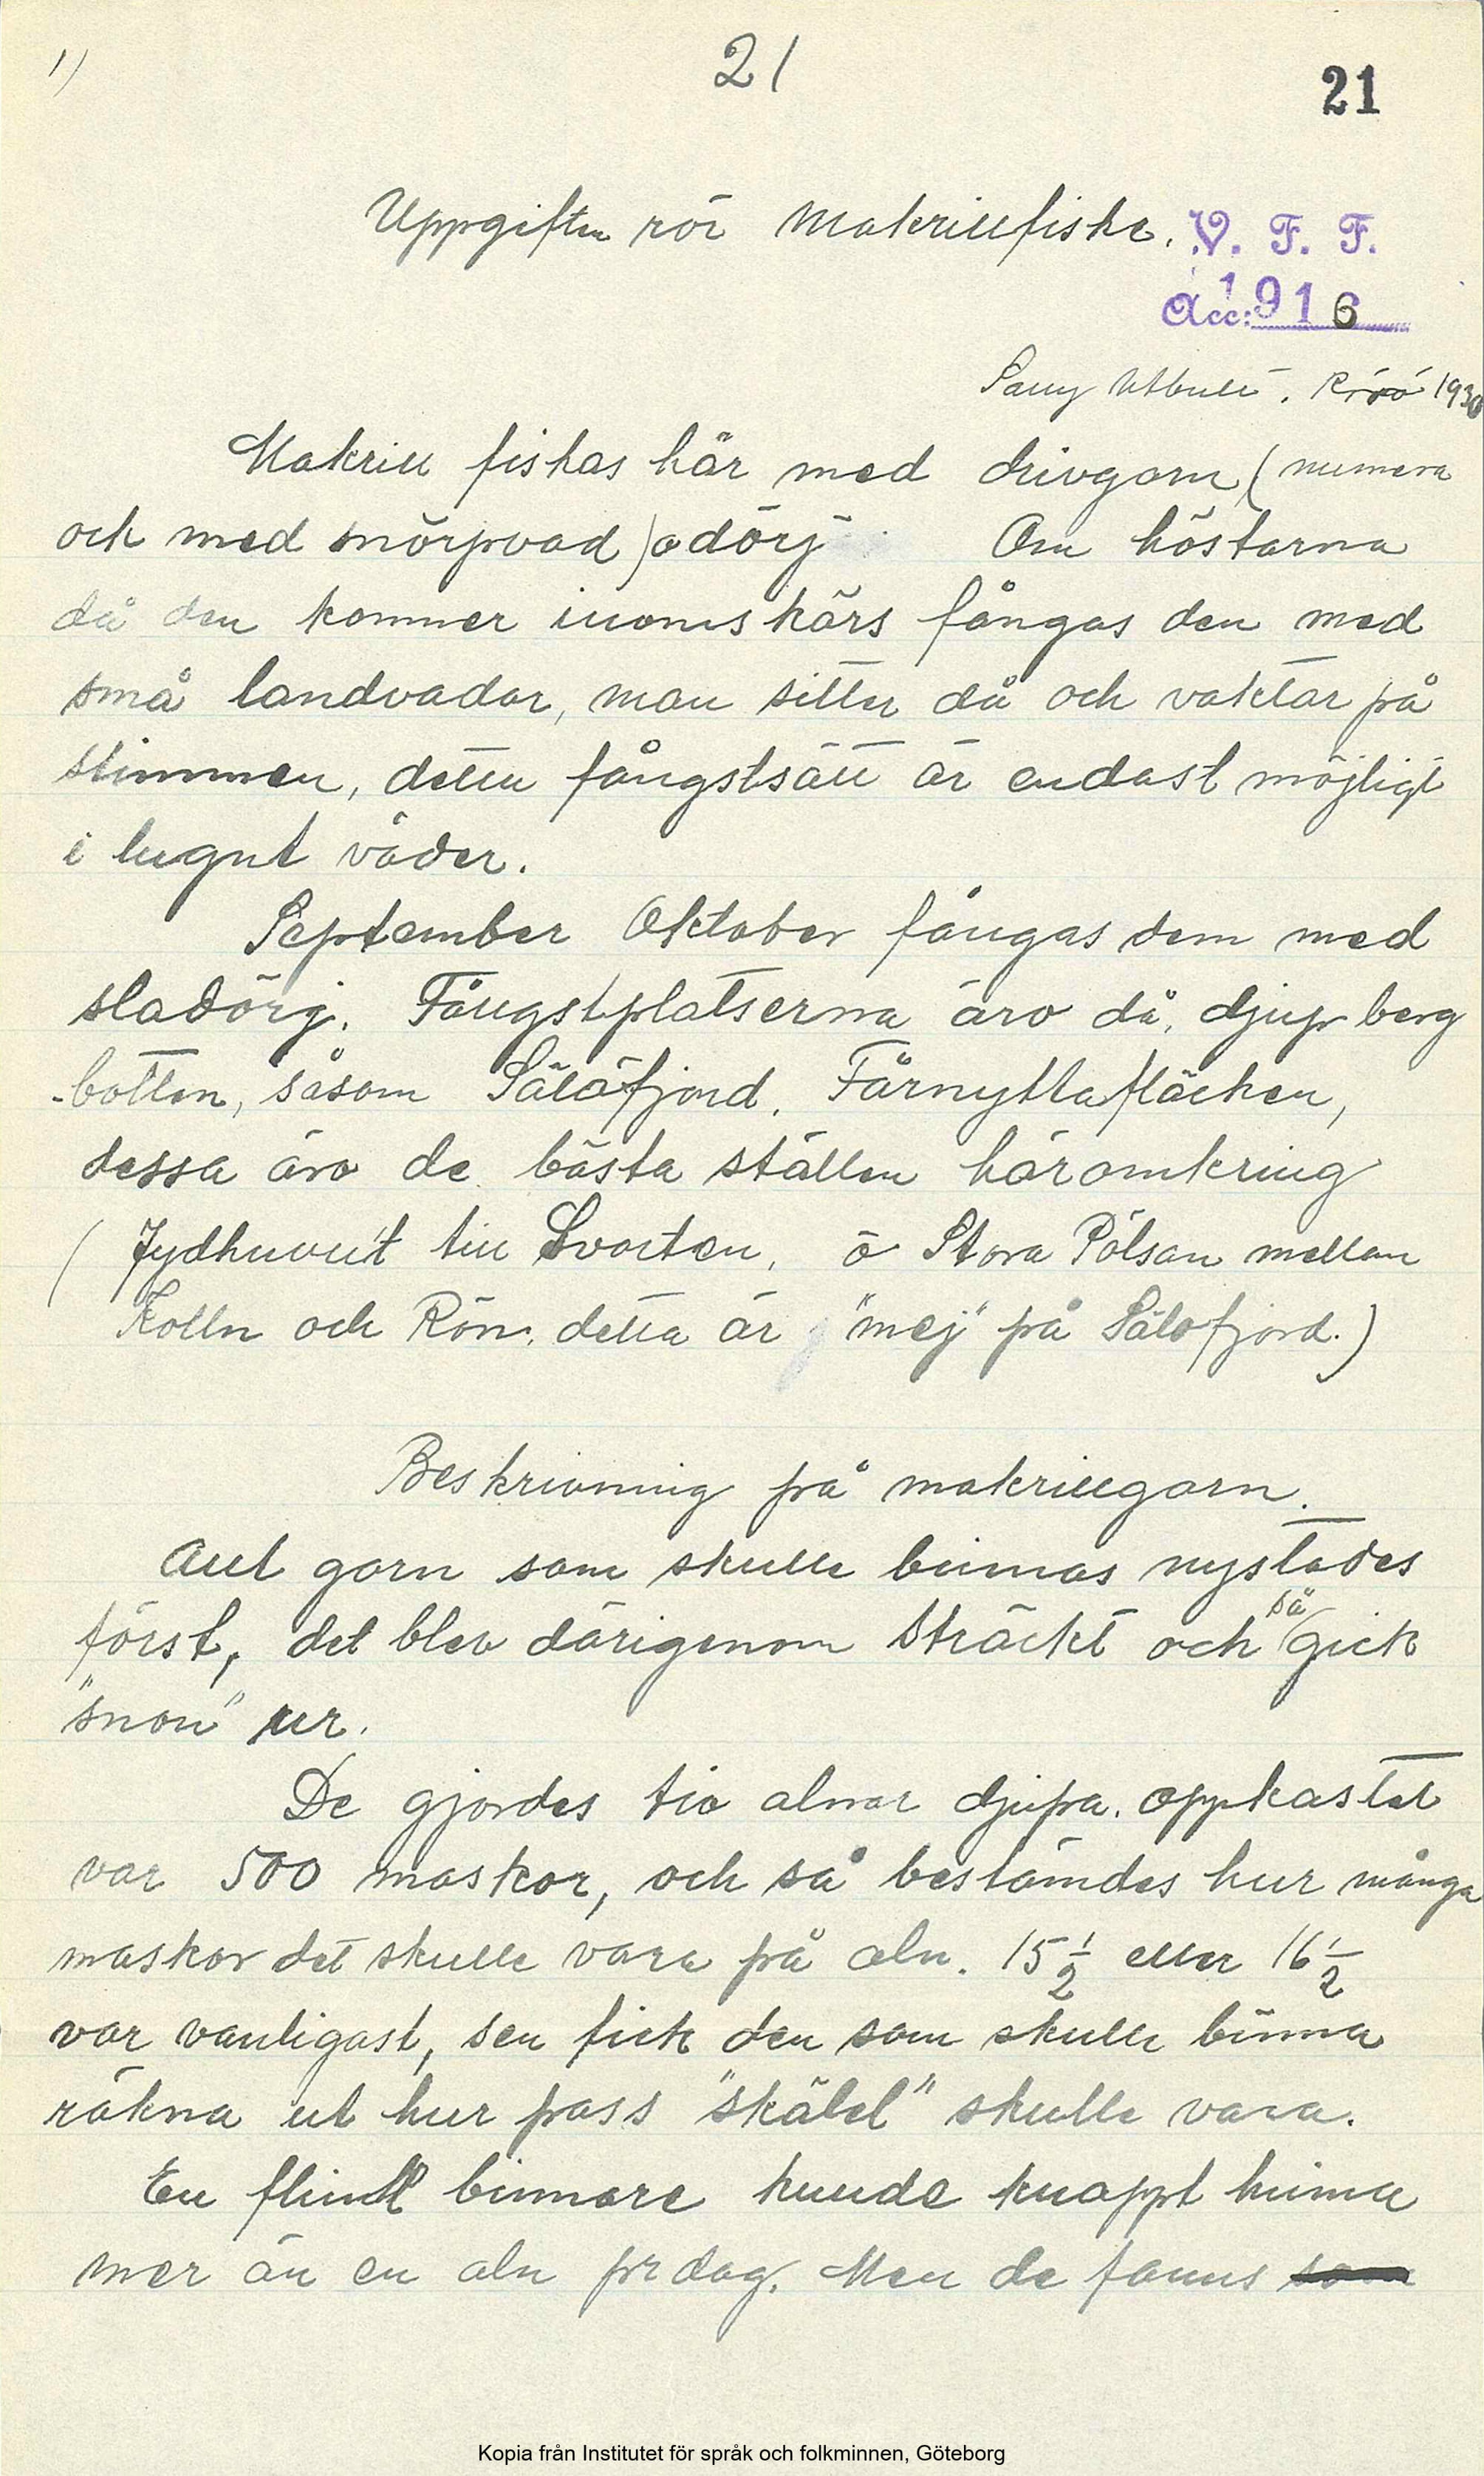 1)
21
21
Uppgifter rör Makrillfiske.
V. F. F.
Acc: 1916
Samy Utbult. Rörö 1930
Makrill fiskas här med drivgarn (numera
och med snörpvad) o dörj Om höstarna
då den kommer inomskärs fångas den med
små landvadar, man sitter då och vaktar på
stimmen, detta fångstsätt är endast möjligt
i lugnt väder.
September Oktober fångas dem med
sladörj. Fångstplatserna äro då, djup berg
-botten, såsom Sälöfjord. Fårnyttafläcken,
dessa äro de bästa ställen häromkring
(Jydhuvu't till Svarten, o Stora Pölsan mellan
Kolln och Rön, detta är "mej" på Sälofjord.)
Beskrivning på makrillgarn.
Allt garn som skulle binnas nystades
först, det blev därigenom sträckt och så gick
"snon" ur.
De gjordes tio alnar djupa. oppkastet
var 500 maskor, och så bestämdes hur många
maskor det skulle vara på aln. 15 1/2 eller 16 1/2
var vanligast, sen fick den som skulle binna
räkna ut hur pass "skälel" skulle vara.
En flink binnare kunde knappt hinna
mer än en aln pr dag. Men de fanns som
Kopia från Institutet för språk och folkminnen, Göteborg